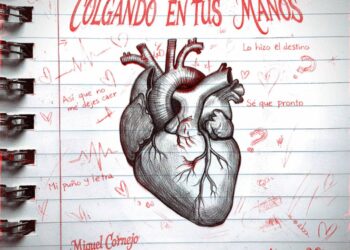 COLGANDO EN TUS MANOS
Lo hizo el destino
Así que no
me dejes caer
Sé que pronto
Mi puño y letra
Miguel Cornejo